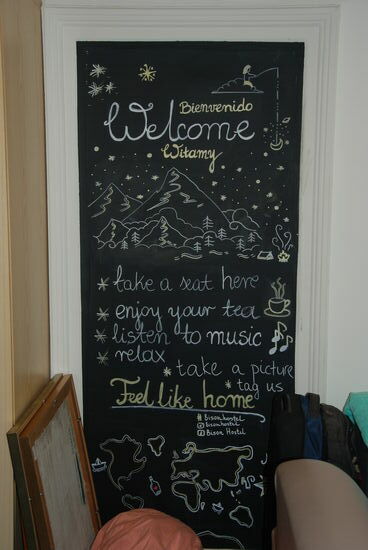 Bienvenido
Welcome
Witamy
* take a seat here
* enjoy your tea
* listen to music
* relax
* take a picture
* tag us
Feel like home
# Bisonhostel
bisonhostel
Bison Hostel